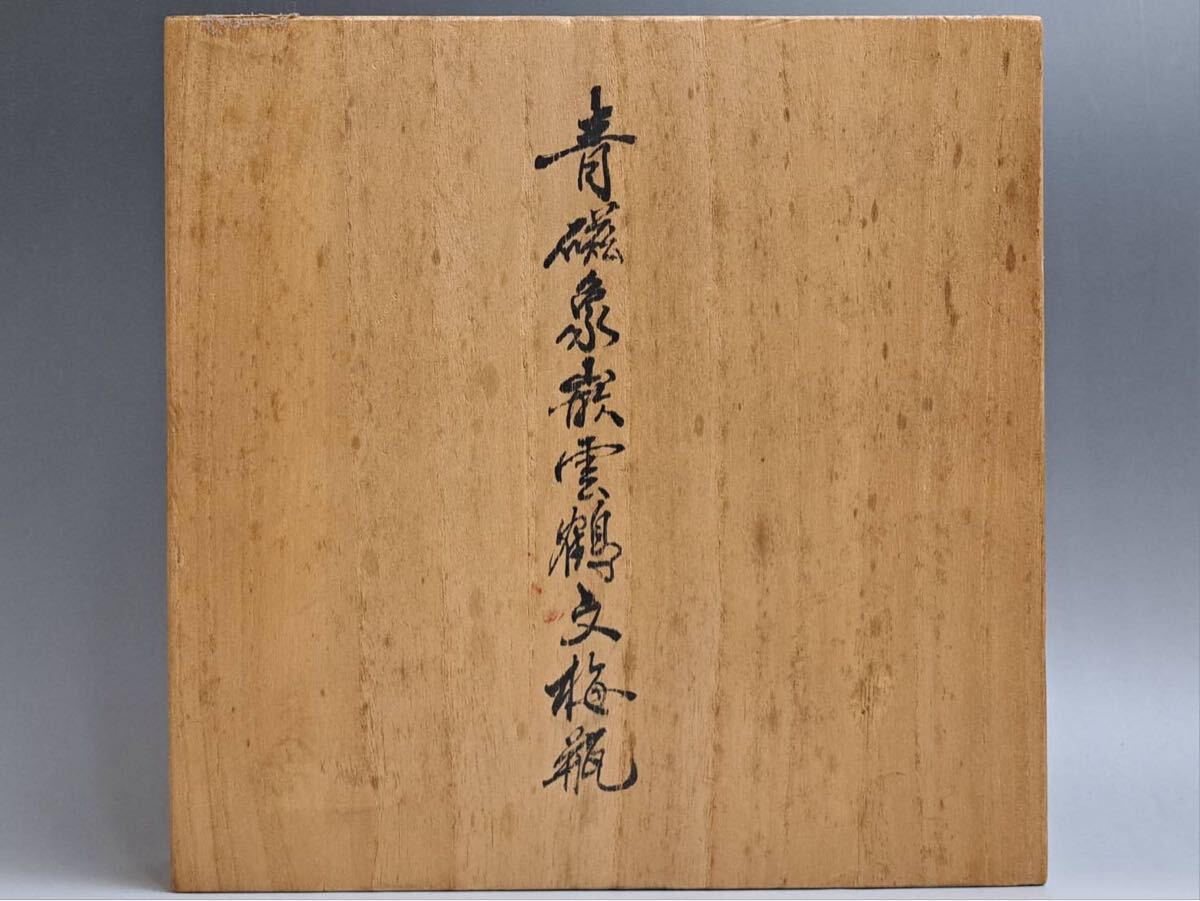 青磁象嵌雲鶴文梅瓶